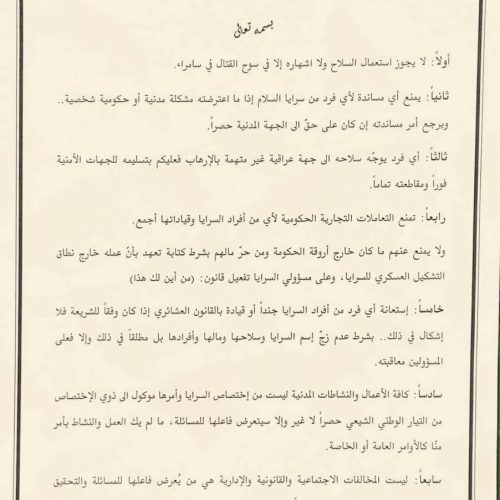 بسمه تعالى
أولاً: لا يجوز استعمال السلاح ولا اشهاره إلا في سوح القتال في سامراء.
ثانياً: يمنع أي مساندة لأي فرد من سرايا السلام إذا ما اعترضته مشكلة مدنية أو حكومية شخصية..
ويرجع أمر مساندته إن كان على حقّ الى الجهة المدنية حصراً.
ثالثاً: أي فرد يوجّه سلاحه الى جهة عراقية غير متهمة بالإرهاب فعليكم بتسليمه للجهات الأمنية
فوراً ومقاطعته تماماً.
رابعاً: تمنع التعاملات التجارية الحكومية لأي من أفراد السرايا وقياداتها أجمع.
ولا يمنع عنهم ما كان خارج أروقة الحكومة ومن حرّ مالهم بشرط كتابة تعهد بأنّ عمله خارج نطاق
التشكيل العسكري للسرايا، وعلى مسؤولي السرايا تفعيل قانون: (من أين لك هذا)
خامساً: إستعانة أي فرد من أفراد السرايا جنداً أو قيادة بالقانون العشائري إذا كان وفقاً للشريعة فلا
إشكال في ذلك.. بشرط عدم زجّ إسم السرايا وسلاحها ومالها وأفرادها بل مطلقاً في ذلك وإلا فعلى
المسؤولين معاقبته.
سادساً: كافة الأعمال والنشاطات المدنية ليست من إختصاص السرايا وأمرها موكول الى ذوي الإختصاص
من التيار الوطني الشيعي حصراً لا غير وإلا سيتعرض فاعلها للمسائلة، ما لم يك العمل والنشاط بأمر
منّا كالأوامر العامة أو الخاصة.
سابعاً: ليست المخالفات الاجتماعية والقانونية والإدارية هي من يُعرض فاعلها للمسائلة والتحقيق